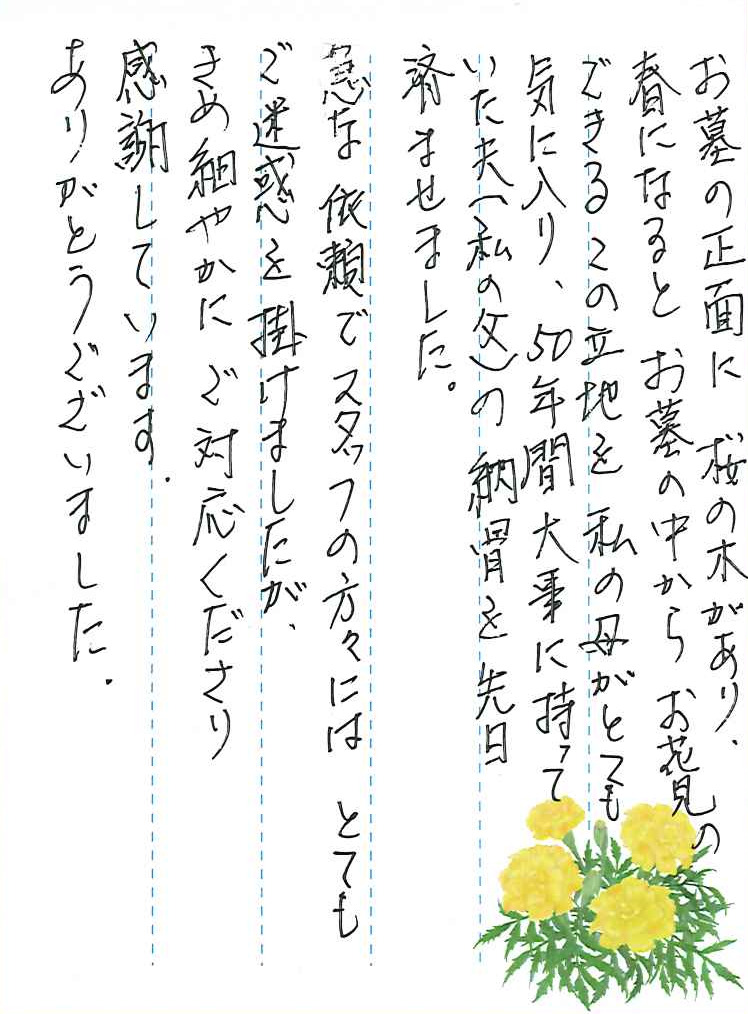 お墓の正面に 桜の木があり、
春になると お墓の中から お花見の
できる この立地を 私の母がとても
気に入り、50年間大事に持って
いた夫(私の父)の納骨を先日
済ませました。
急な依頼でスタッフの方々には とても
ご迷惑を掛けましたが、
きめ細やかに ご対応くださり
感謝しています.
ありがとうございました.